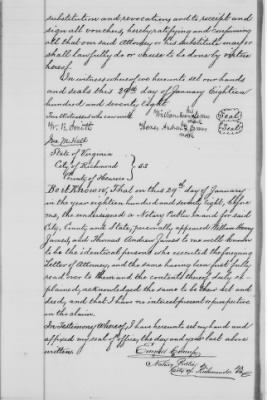 substitution and revocation, and to receipt and
sign all vouchers, hereby ratifying and confirming
all that our said Attorney or his substitute may or
shall lawfully do or cause to be done by virtue
hereof.
In witness whereof we hereunto set our hands
and seals this 29th day of January Eighteen
hundred and seventy eight.
his
William Henry James (Seal)
mark
Thomas Andrew James (Seal)
mark
State of Virginia
City of Richmond } SS
County of Henrico
Be it Known, That on this 29th day of January
in the year eighteen hundred and seventy eight, before
me, the undersigned a Notary Public in and for said
City, County and State, personally appeared William Henry
James, and Thomas Andrew James to me well known
to be the identical persons who executed the foregoing
Letter of Attorney, and the same having been first fully
read over to them and the contents thereof duly ex-
plained, acknowledged the same to be their act and
deed, and that I have no interest present or prospective
in the claim.
In Testimony Whereof, I have hereunto set my hand and
affixed my seal of office, the day and year last above
written.
Notary Public,
City of Richmond Va